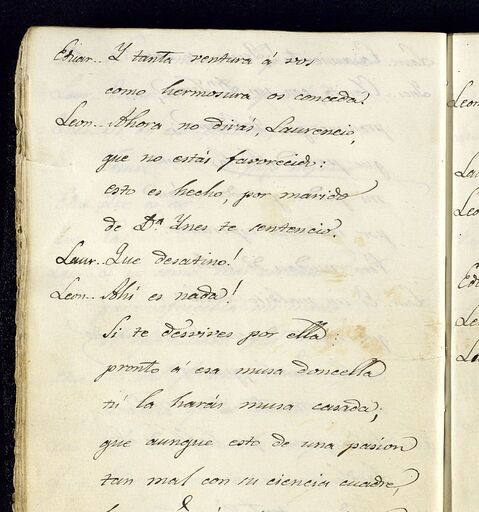 Eduar.. Y tanta ventura á vos
como hermosura os conceda.
Leon.. Ahora no dirás, Laurencio,
que no estás favorecido:
esto es hecho, por marido
de Dª Ynes te sentencio.
Laur.. Que desatino!
Leon.. Ahi es nada!
Si te desvives por ella:
pronto á esa musa doncella
tú la harás musa casada;
que aunque esto de una pasion
tan mal con su ciencia cuadre,
Leon
Lau
Leo
Edu
Leo